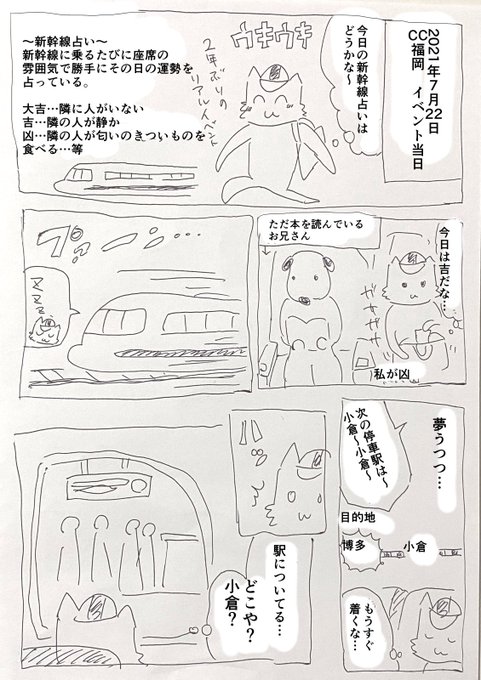 2021年7月22日
CC福岡　イベント当日
今日の新幹線占いは
どうかな～
ウキウキ
2年ぶりの
リアルイベント
～新幹線占い～
新幹線に乗るたびに座席の
雰囲気で勝手にその日の運勢を
占っている。
大吉…隣に人がいない
吉…隣の人が静か
凶…隣の人が匂いのきついものを
食べる…等
今日は吉だな…
ガサガサ
私が凶
ただ本を読んでいる
お兄さん
zzz…
夢うつつ…
次の停車駅は～
小倉～小倉～
目的地
博多
小倉
もうすぐ
着くな…
ハッ
駅についてる…
どこや？
小倉？